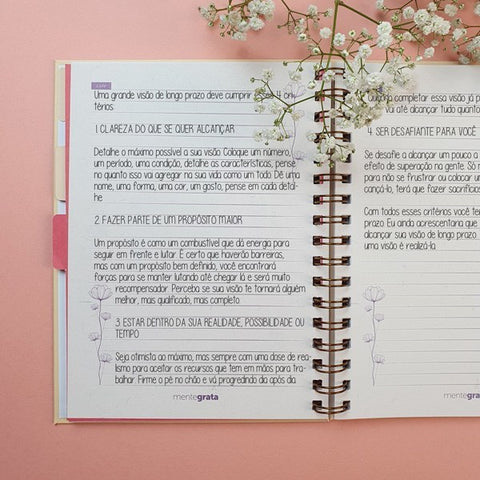 Uma grande visão de longo prazo deve cumprir 4 cri-
térios:
1. CLAREZA DO QUE SE QUER ALCANÇAR
Detalhe o máximo possível a sua visão. Coloque um número,
um período, uma condição, detalhe as características, pense
no quanto isso vai agregar na sua vida como um todo. Dê uma
nome, uma forma, uma cor, um gosto, pense em cada detal-
he.
2. FAZER PARTE DE UM PROPÓSITO MAIOR
Um propósito é como um combustível que dá energia para
seguir em frente e lutar. É certo que haverão barreiras,
mas com um propósito bem definido, você encontrará
forças para se manter lutando até chegar lá e será muito
recompensador. Perceba se sua visão te tornará alguém
melhor, mais qualificado, mais completo.
3. ESTAR DENTRO DA SUA REALIDADE, POSSIBILIDADE OU
TEMPO
Seja otimista ao máximo, mas sempre com uma dose de rea-
lismo para aceitar os recursos que tem em mãos para tra-
balhar. Firme o pé no chão e vá progredindo dia após dia.
mentegrata
completar essa visão já p
até alcançar tudo quanto
4. SER DESAFIANTE PARA VOCÊ
Se desafie a alcançar um pouco a
efeito de superação na gente. Só
para não se frustrar ou colocar u
cançá-lo, terá que fazer sacrifícios
Com todos esses critérios você ter
prazo. Eu ainda acrescentaria que
alcançar sua visão de longo prazo
uma visão é realizá-la.
mentegrata